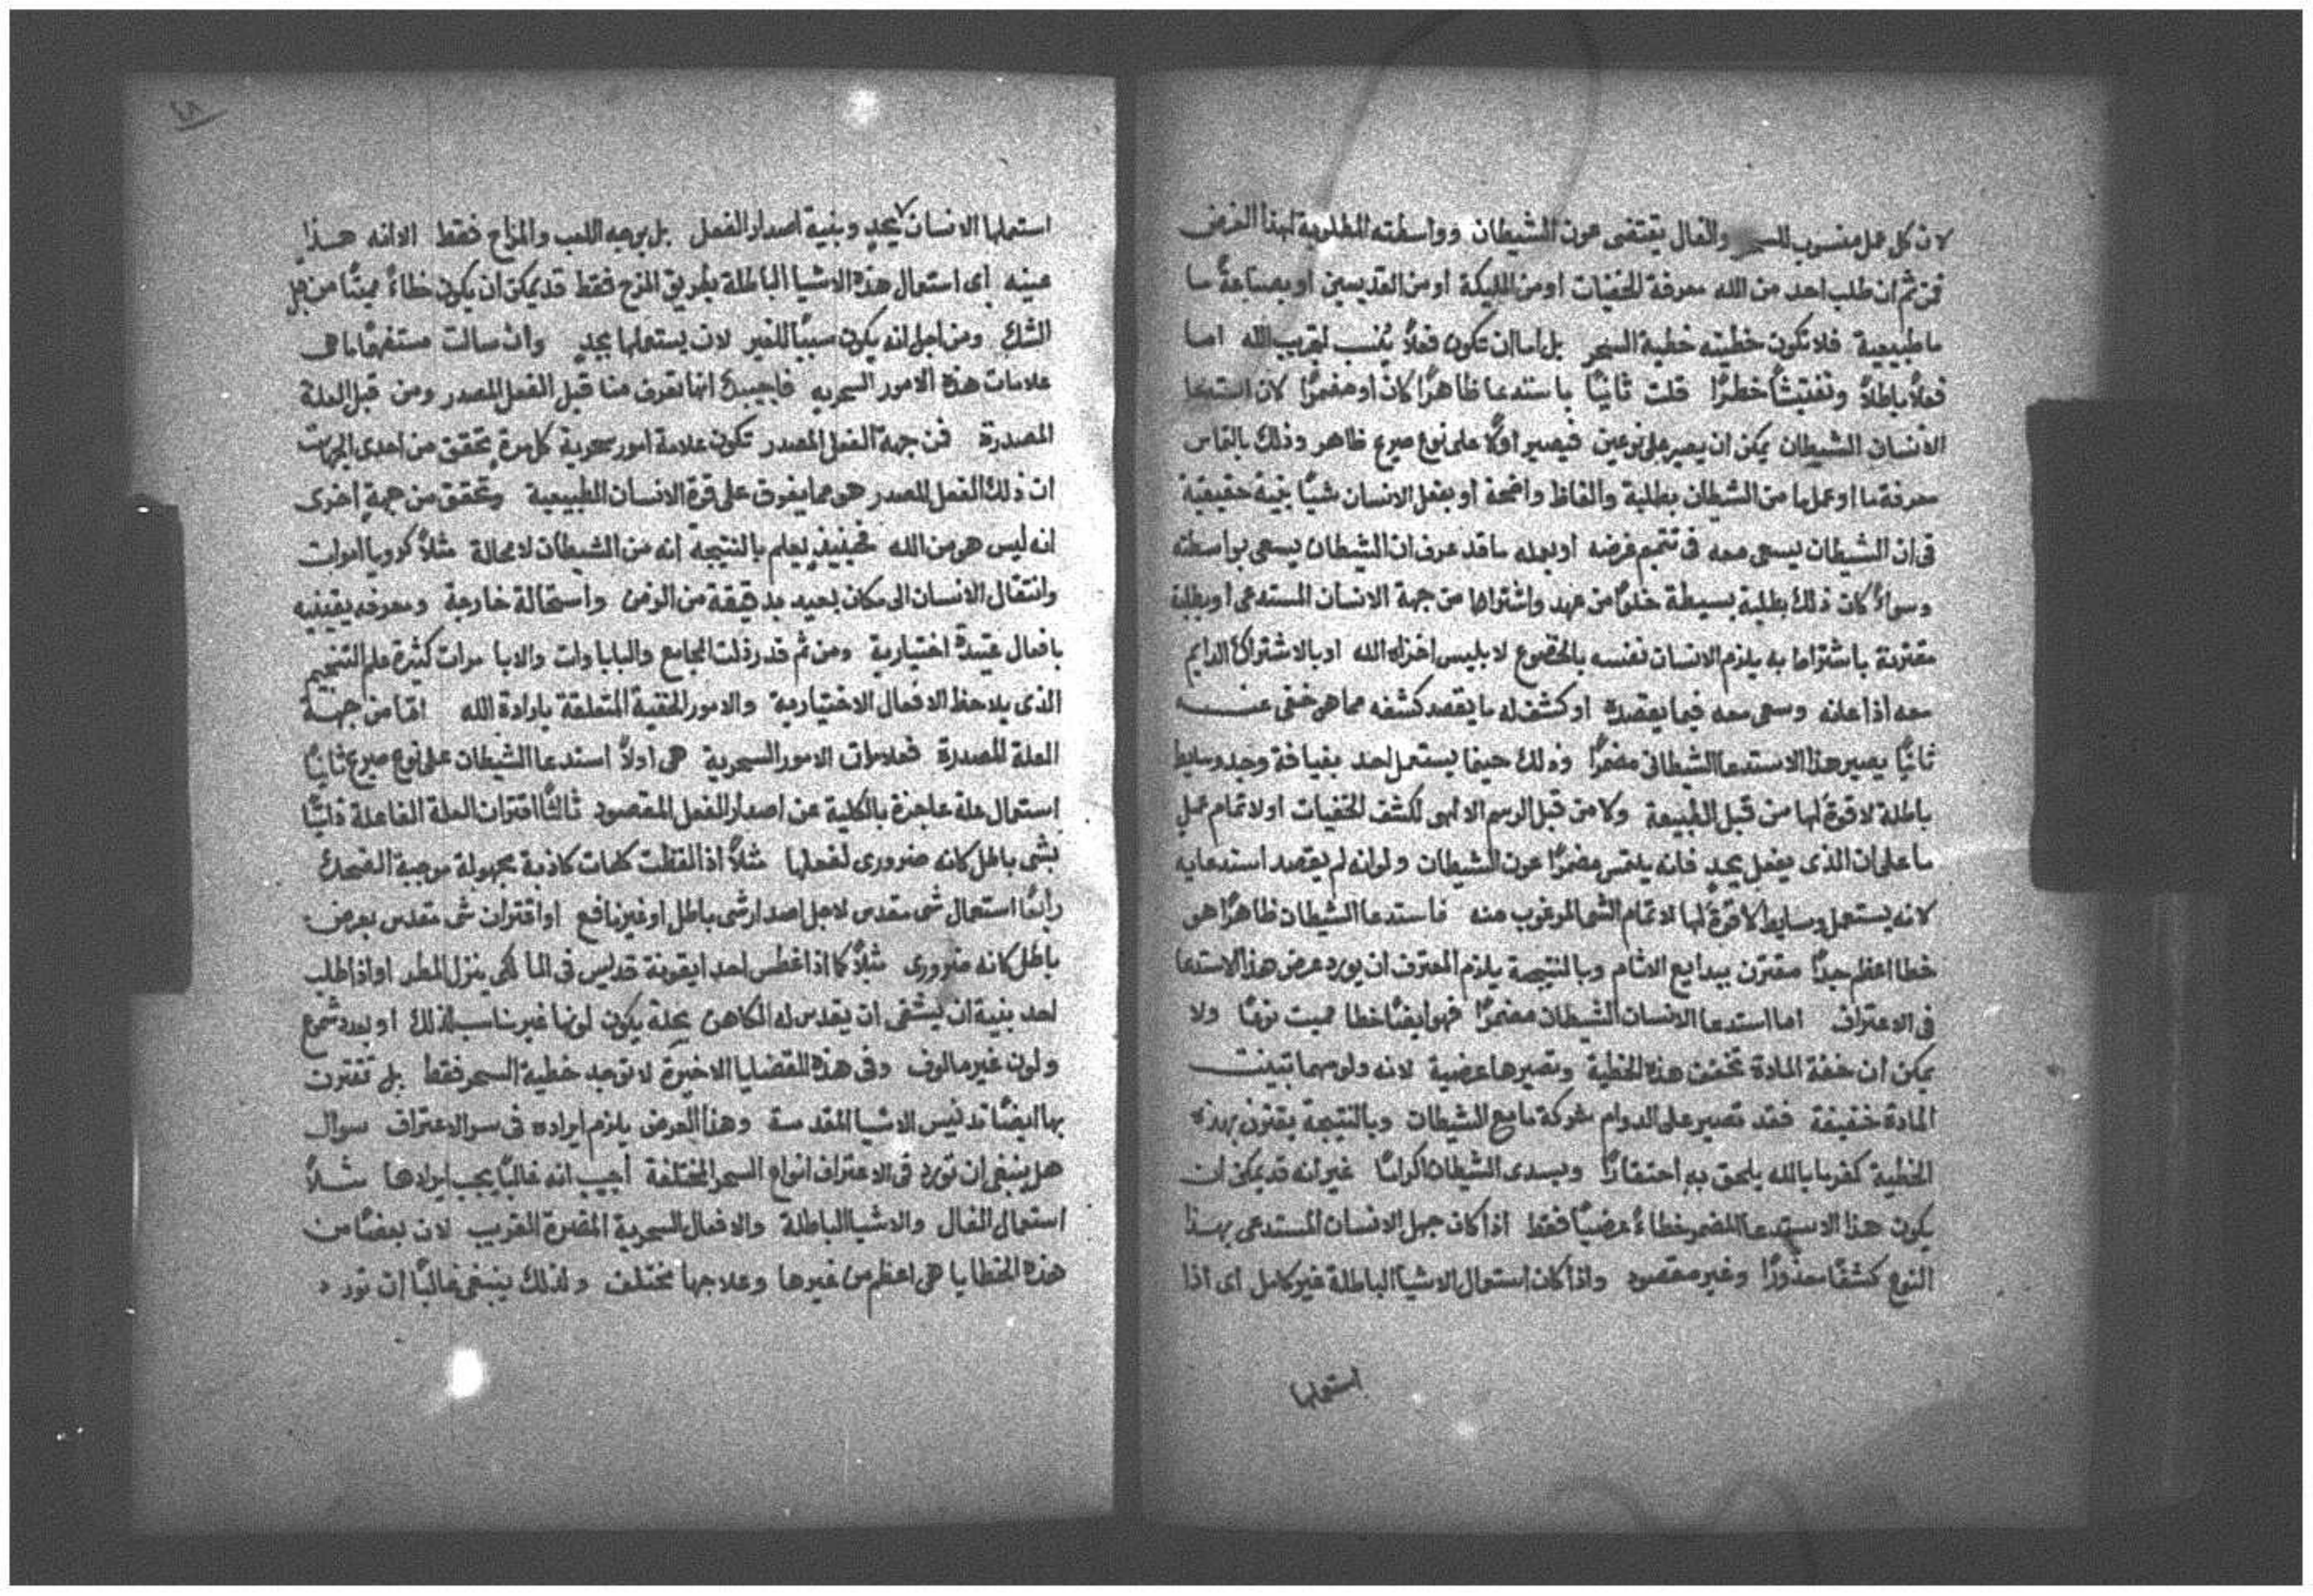 لان كل عمل منسوب للسحر والفال يقتضى عون الشيطان وواسطته المطلوبة لهذا الغرض
فمن ثم ان طلب احد من الله معرفة الخفيات او من المليكة او من القديسين او بصناعة ما
ما طبيعية فلا تكون خطيته خطية السحر بل اما ان تكون فعلاً يُنسب لتجريب الله اما
فعلاً باطلاً وتفتيشاً خطراً قلت ثانياً باستدعا ظاهراً كان او مضمراً لان استدعا
الانسان الشيطان يمكن ان يصير على نوعين فيصير اولاً على نوع صريح ظاهر وذلك بالتماس
معرفة ما او عمل ما من الشيطان بطلبة والفاظ واضحة او بفعل الانسان شياً بنية حقيقية
فى ان الشيطان يسعى معه فى تتميم غرضه او بعمله ما قد عرف ان الشيطان يسعى بواسطته
وسواءً كان ذلك بطلبة بسيطة خلواً من عهد واشتراط من جهة الانسان المستدعى او بطلبة
مقترنة باشتراط به يلزم الانسان نفسه بالخضوع لابليس اخزاه الله او بالاشتراك الدايم
معه اذا اعانه وسعى معه فيما يقصده او كشف له ما يقصد كشفه مما هو خفى عنه
ثانياً يصير هذا الاستدعا الشيطانى مضمراً وذلك حينما يستعمل احد بفيافة وجد وسايط
باطلة لا قوة لها من قبل الطبيعة ولا من قبل الرسم الالهى لكشف الخفيات او لاتمام عملٍ
ما على ان الذى يفعل بجدٍ فانه يلتمس مضمراً عون الشيطان ولو انه لم يقصد استدعايه
لانه يستعمل وسايط لا قوة لها لاتمام الشى المرغوب منه فاستدعا الشيطان ظاهراً هو
خطا اعظم جداً مقترن ببدايع الاثام وبالنتيجة يلزم المعترف ان يورد عرض هذا الاستدعا
فى الاعتراف اما استدعا الانسان الشيطان مضمراً فهو ايضاً خطا مميت نوعاً ولا
يمكن ان خفة المادة تخفف هذه الخطية وتصيرها عرضية لانه ولو مهما تبينت
المادة خفيفة فقد تصير على الدوام شركة ما مع الشيطان وبالنتيجة يقترن بهذه
الخطية كفر ما بالله يلحق به احتقاراً ويسدى الشيطان اكراماً غير انه قد يمكن ان
يكون هذا الاستدعا المضمر خطاءً عرضياً فقط اذا كان جهل الانسان المستدعى بهذا
النوع كشفاً معذوراً وغير مقصود واذا كان استعمال الاشيا الباطلة غير كامل اى اذا
استعملها
٤٨
استعملها الانسان لا بجدٍ وبنية اصدار الفعل بل بوجه اللعب والمزاح فقط الا انه هذا
عينه اى استعمال هذه الاشيا الباطلة بطريق المزح فقط قد يمكن ان يكون خطاءً مميتاً من قبل
الشك ومن اجل انه يكون سبباً للغير لان يستعملها بجدٍ وان سالت مستفهماً ما هى
علامات هذه الامور السحريه فاجيبك انها تعرف منا قبل الفعل المصدر ومن قبل العلة
المصدرة فمن جهة الفعل المصدر تكون علامة امور سحرية كل مرةٍ تحقق من احدى الجهات
ان ذلك الفعل المصدر هو مما يفوق على قوة الانسان الطبيعية وتحقق من جهةٍ اخرى
انه ليس هو من الله فحينيذٍ يعلم بالنتيجة انه من الشيطان لا محالة مثلاً كرويا اموات
وانتقال الانسان الى مكان بعيد بدقيقة من الزمن واستحالة خارجة ومعرفه يقينيه
بافعال عتيدة اختيارية ومن ثم قد رذلت المجامع والباباوات والابا مرات كثيرة علم التنجيم
الذى يلاحظ الافعال الاختيارية والامور الخفية المتعلقة بارادة الله اما من جهة
العلة المصدرة فعلامات الامور السحرية هى اولاً استدعا الشيطان على نوع صريح ثانياً
استعمال علة عاجزة بالكلية عن اصدار الفعل المقصود ثالثاً اقتران العلة الفاعلة ذاتياً
بشى باطل كانه ضرورى لفعلها مثلاً اذا لفظت كلمات كاذبة مجهولة موجبة الضحك
رابعاً استعمال شى مقدس لاجل اصدار شى باطل او غير نافع او اقتران شى مقدس بعرض
باطل كانه ضرورى مثلاً كما اذا غطس احد ايقونة قديس فى الما لكى ينزل المطر او اذا طلب
احد بنية ان يشفى ان يقدس له الكاهن بحلة يكون لونها غير مناسب لذلك او بعدد شموع
ولون غير مالوف وفى هذه القضايا الاخيرة لا توجد خطية السحر فقط بل تقترن
بها ايضاً تدنيس الاشيا المقدسة وهذا العرض يلزم ايراده فى سر الاعتراف سوال
هل ينبغى ان تورد فى الاعتراف انواع السحر المختلفة أجيب انه غالباً يجب ايرادها مثلاً
استعمال الفال والاشيا الباطلة والافعال السحرية المضرة القريب لان بعضاً من
هذه الخطايا هى اعظم من غيرها وعلاجها مختلف ولذلك ينبغى غالباً ان تورد